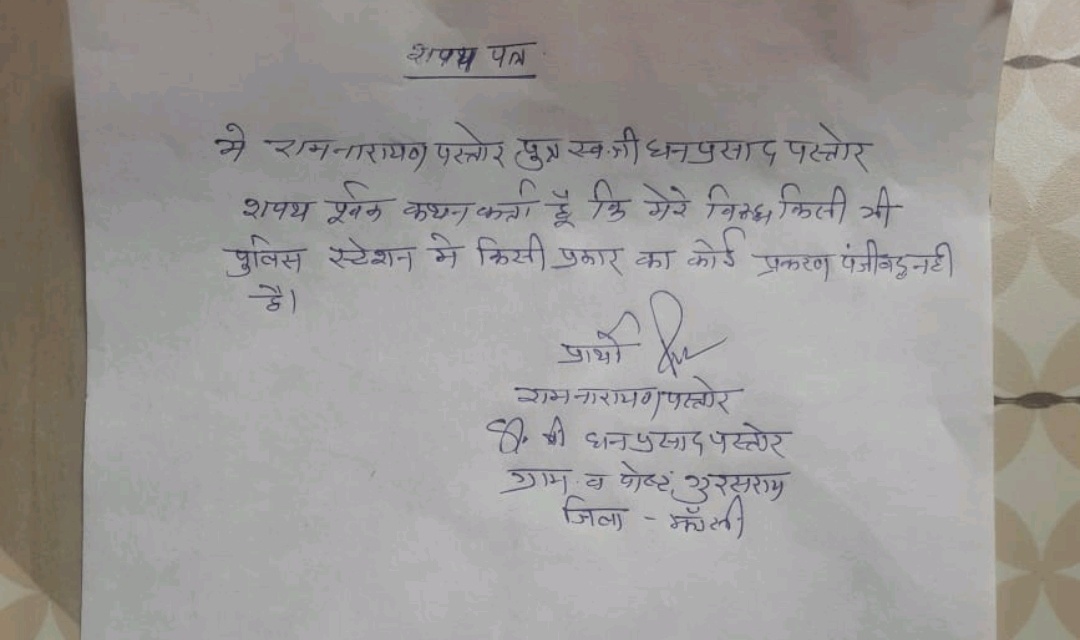 शपथ पत्र
मे रामनारायण पस्तोर पुत्र स्व. श्री धनप्रसाद पस्तोर
शपथ पूर्वक कथन कर्ता हूँ कि मेरे विरूध्द किसी भी
पुलिस स्टेशन मे किसी प्रकार का कोई प्रकरण पंजीबद्ध नही
है।
प्रार्थी
रामनारायण पस्तोर
S/o श्री धनप्रसाद पस्तोर
ग्राम व पोस्ट गुरसराय
जिला - झाँसी